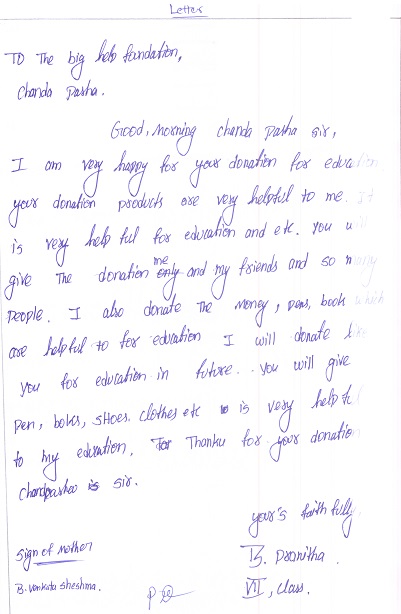 Letter
TO The big help foundation,
Chanda Pasha.
Good, Morning chanda Pasha sir,
I am very happy for your donation for education
your donation products are very helpful to me. It
is very help ful for education and etc. you will
give The donation me only and my friends and so many
People. I also donate The money, pens, book which
are helpful to for education I will donate like
you for education in future. you will give
pen, boks, shoes. clothes etc is very help ful
to my education. Thanku for your donation
Chandpasha is sir.
your's faith fully,
B. Pranitha.
VII, class.
sign of Mother
B. Venkata Sheshma.